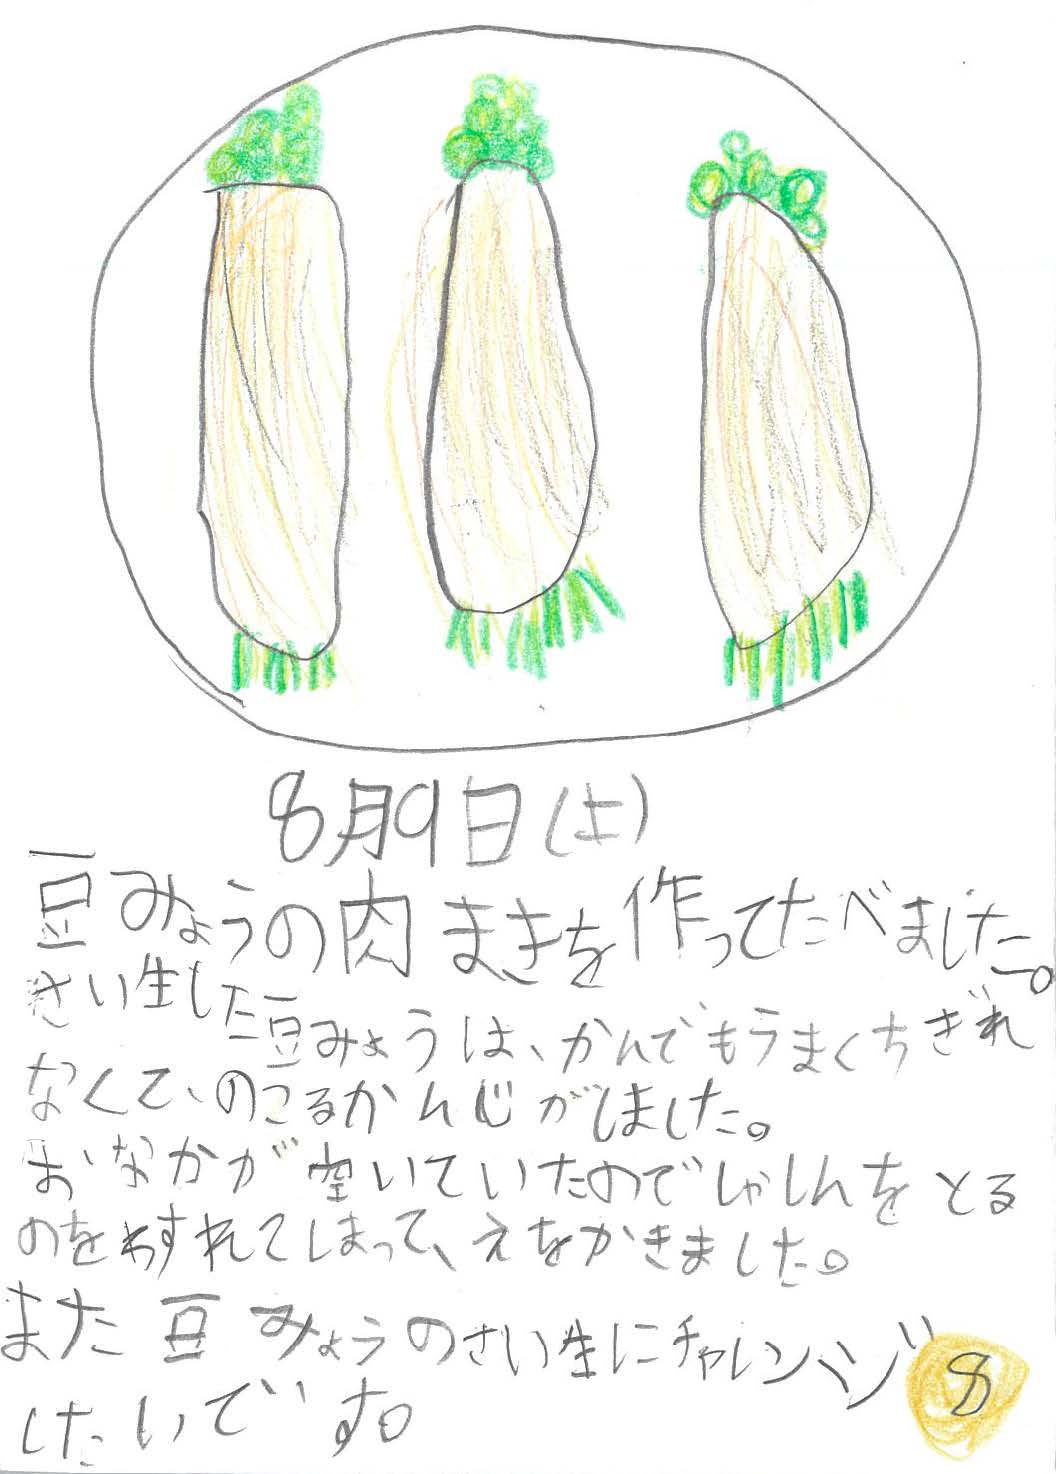 8月9日(土)
豆みょうの肉まきを作ってたべました。
さい生した豆みょうは、かんでもうまくちぎれ
なくて、のこるかんじがしました。
おなかが空いていたのでしゃしんをとる
のをわすれてしまって、えをかきました。
また豆みょうのさい生にチャレンジ
したいです。
8